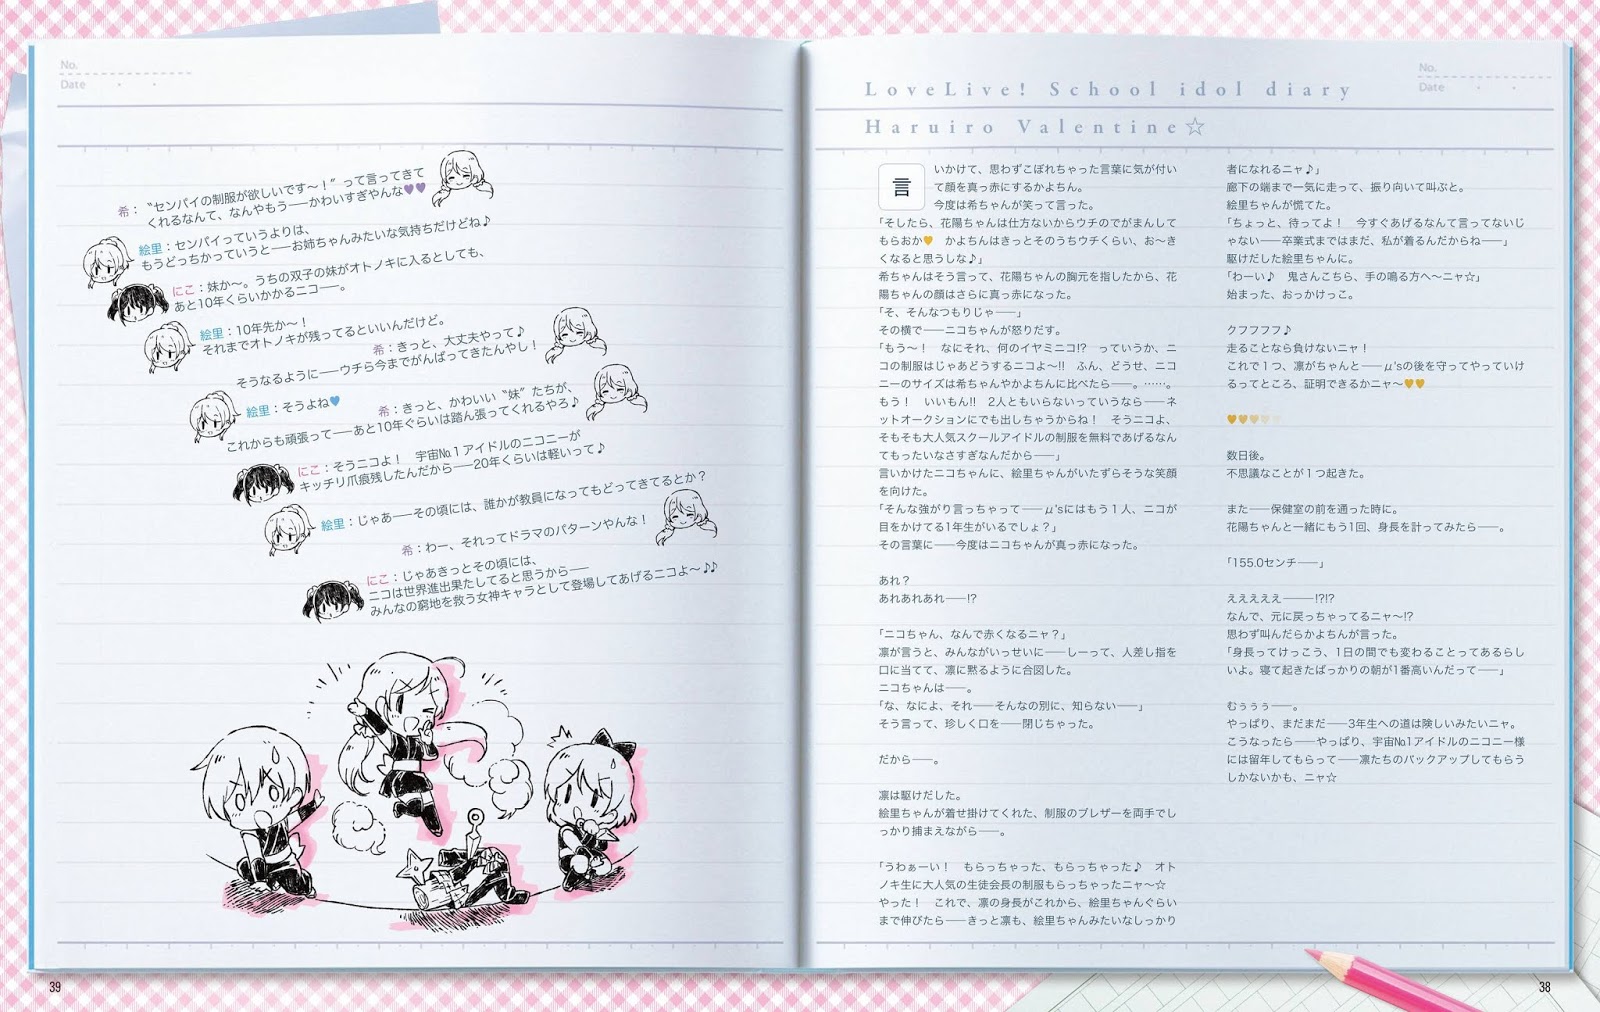 No.
Date
LoveLive! School idol diary
Haruiro Valentine☆
言
いかけて、思わずこぼれちゃった言葉に気が付い
て顔を真っ赤にするかよちん。
今度は希ちゃんが笑って言った。
「そしたら、花陽ちゃんは仕方ないからウチのでがまんして
もらおか♥　かよちんはきっとそのうちウチくらい、お～き
くなると思うしな♪」
希ちゃんはそう言って、花陽ちゃんの胸元を指したから、花
陽ちゃんの顔はさらに真っ赤になった。
「そ、そんなつもりじゃ――」
その横で――ニコちゃんが怒りだす。
「もう～！　なにそれ、何のイヤミニコ!?　っていうか、ニ
コの制服はじゃあどうするニコよ～!!　ふん、どうせ、ニコ
ニーのサイズは希ちゃんやかよちんに比べたら――。……。
もう！　いいもん!!　2人ともいらないっていうなら――ネ
ットオークションにでも出しちゃうからね！　そうニコよ、
そもそも大人気スクールアイドルの制服を無料であげるなん
てもったいなさすぎなんだから――」
言いかけたニコちゃんに、絵里ちゃんがいたずらそうな笑顔
を向けた。
「そんな強がり言っちゃって――μ'sにはもう1人、ニコが
目をかけてる1年生がいるでしょ？」
その言葉に――今度はニコちゃんが真っ赤になった。
あれ？
あれあれあれ――!?
「ニコちゃん、なんで赤くなるニャ？」
凛が言うと、みんながいっせいに――しーって、人差し指を
口に当てて、凛に黙るように合図した。
ニコちゃんは――。
「な、なによ、それ――そんなの別に、知らない――」
そう言って、珍しく口を――閉じちゃった。
だから――。
凛は駆けだした。
絵里ちゃんが着せ掛けてくれた、制服のブレザーを両手でし
っかり捕まえながら――。
「うわぁーい！　もらっちゃった、もらっちゃった♪　オト
ノキ生に大人気の生徒会長の制服もらっちゃったニャ～☆
やった！　これで、凛の身長がこれから、絵里ちゃんぐらい
まで伸びたら――きっと凛も、絵里ちゃんみたいなしっかり
No.
Date
者になれるニャ♪」
廊下の端まで一気に走って、振り向いて叫ぶと。
絵里ちゃんが慌てた。
「ちょっと、待ってよ！　今すぐあげるなんて言ってないじ
ゃない――卒業式まではまだ、私が着るんだからね――」
駆けだした絵里ちゃんに。
「わーい♪　鬼さんこちら、手の鳴る方へ～ニャ☆」
始まった、おっかけっこ。
クフフフフ♪
走ることなら負けないニャ！
これで1つ、凛がちゃんと――μ'sの後を守ってやっていけ
るってところ、証明できるかニャ～♥♥
♥♥♥♥♥
数日後。
不思議なことが1つ起きた。
また――保健室の前を通った時に。
花陽ちゃんと一緒にもう1回、身長を計ってみたら――。
「155.0センチ――」
えええええ―――!?!?
なんで、元に戻っちゃってるニャ～!?
思わず叫んだらかよちんが言った。
「身長ってけっこう、1日の間でも変わることってあるらし
いよ。寝て起きたばっかりの朝が1番高いんだって――」
むぅぅぅ――。
やっぱり、まだまだ――3年生への道は険しいみたいニャ。
こうなったら――やっぱり、宇宙№1アイドルのニコニー様
には留年してもらって――凛たちのバックアップしてもらう
しかないかも、ニャ☆
38
希：“センパイの制服が欲しいです～！”って言ってきて
くれるなんて、なんやもう――かわいすぎやんな♥♥
絵里：センパイっていうよりは、
もうどっちかっていうと――お姉ちゃんみたいな気持ちだけどね♪
にこ：妹か～。うちの双子の妹がオトノキに入るとしても、
あと10年くらいかかるニコ――。
絵里：10年先か～！
それまでオトノキが残ってるといいんだけど。
希：きっと、大丈夫やって♪
そうなるように――ウチら今までがんばってきたんやし！
絵里：そうよね♥
希：きっと、かわいい“妹”たちが、
これからも頑張って――あと10年ぐらいは踏ん張ってくれるやろ♪
にこ：そうニコよ！　宇宙№1アイドルのニコニーが
キッチリ爪痕残したんだから――20年くらいは軽いって♪
絵里：じゃあ――その頃には、誰かが教員になってもどってきてるとか？
希：わー、それってドラマのパターンやんな！
にこ：じゃあきっとその頃には、
ニコは世界進出果たしてると思うから――
みんなの窮地を救う女神キャラとして登場してあげるニコよ～♪♪
39